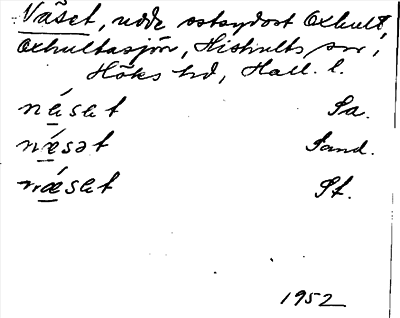 Näset, udde ostsydost Oxhult,
Oxhultasjön, Hishults sn,
Höks hd, Hall. l.
nǽsat Sa.
nǽsət Sand.
nǽsat St.
1952